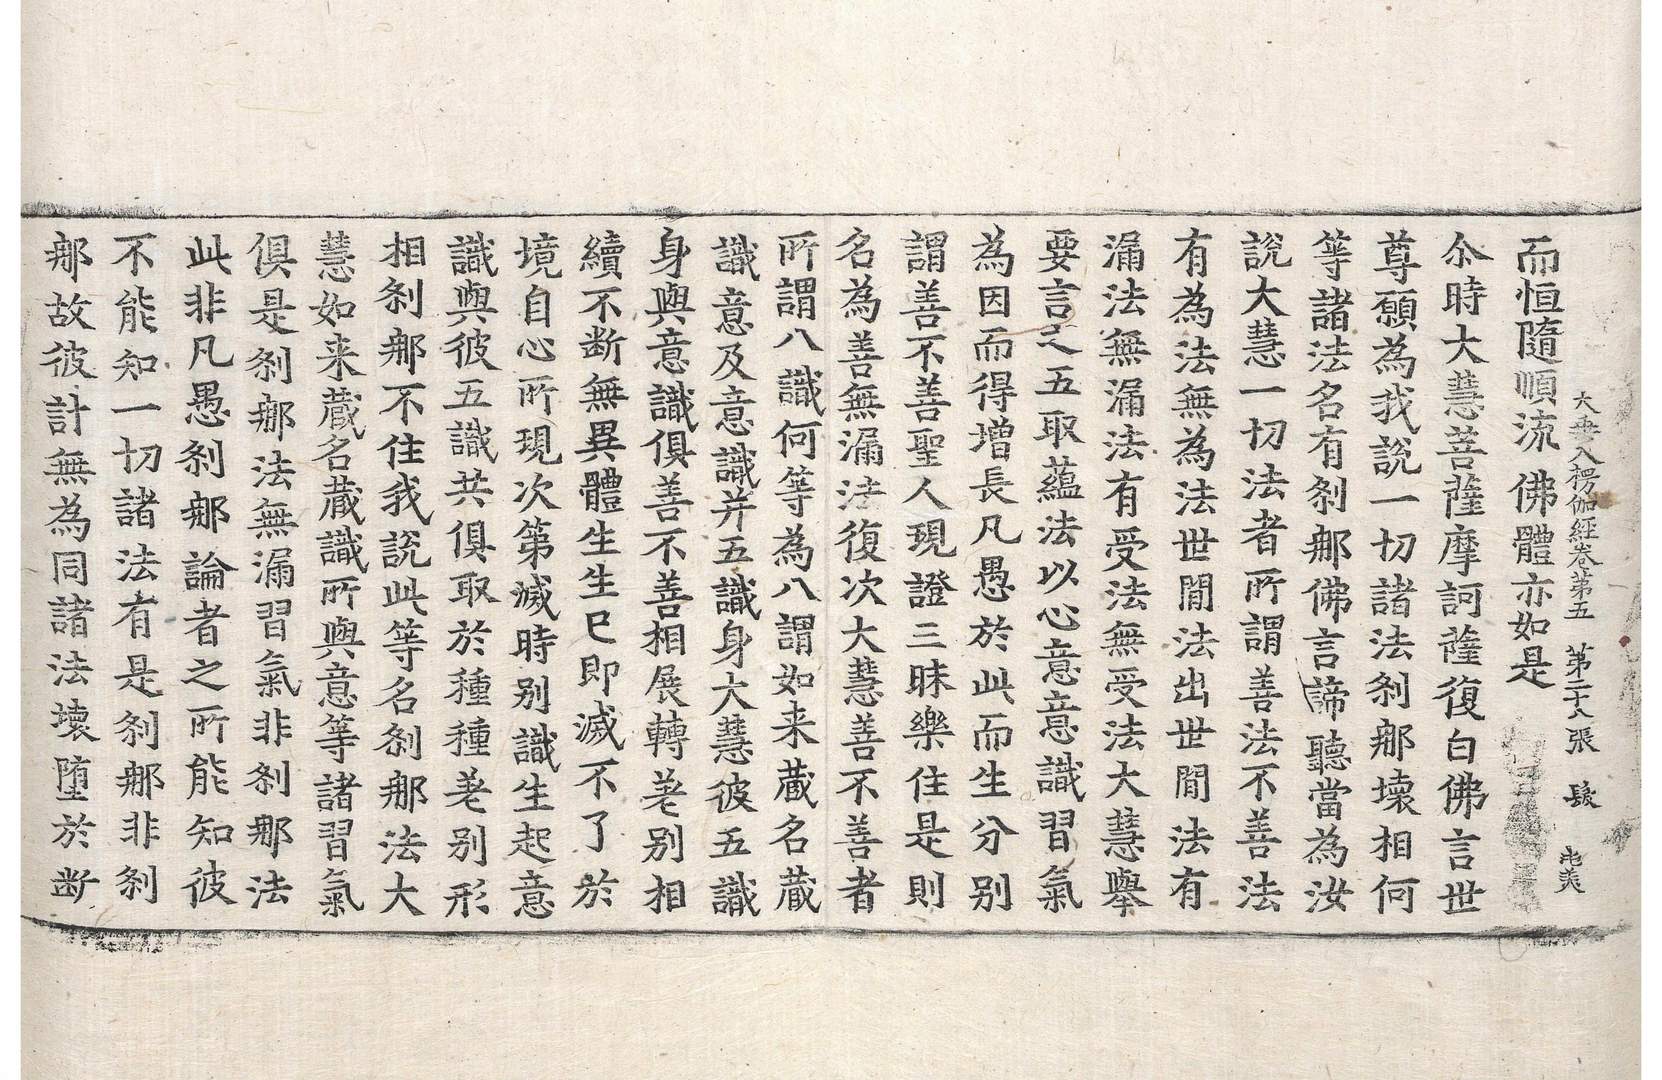 大乗入楞伽經卷第五 第二十八張 髮
而恒隨順流 佛體亦如是
尒時大慧菩薩摩訶薩復白佛言世
尊願為我說一切諸法刹那壞相何
等諸法名有刹那佛言諦聽當為汝
說大慧一切法者所謂善法不善法
有為法無為法世間法出世間法有
漏法無漏法有受法無受法大慧舉
要言之五取蘊法以心意意識習氣
為因而得增長凡愚於此而生分別
謂善不善聖人現證三昧樂住是則
名為善無漏法復次大慧善不善者
所謂八識何等為八謂如来蔵名蔵
識意及意識并五識身大慧彼五識
身與意識俱善不善相展轉差別相
續不断無異體生生已即滅不了於
境自心所現次第滅時別識生起意
識與彼五識共俱取於種種差別形
相刹那不住我說此等名刹那法大
慧如来蔵名蔵識所與意等諸習氣
俱是刹那法無漏習氣非刹那法
此非凡愚刹那論者之所能知彼
不能知一切諸法有是刹那非刹
那故彼計無為同諸法壞堕於断